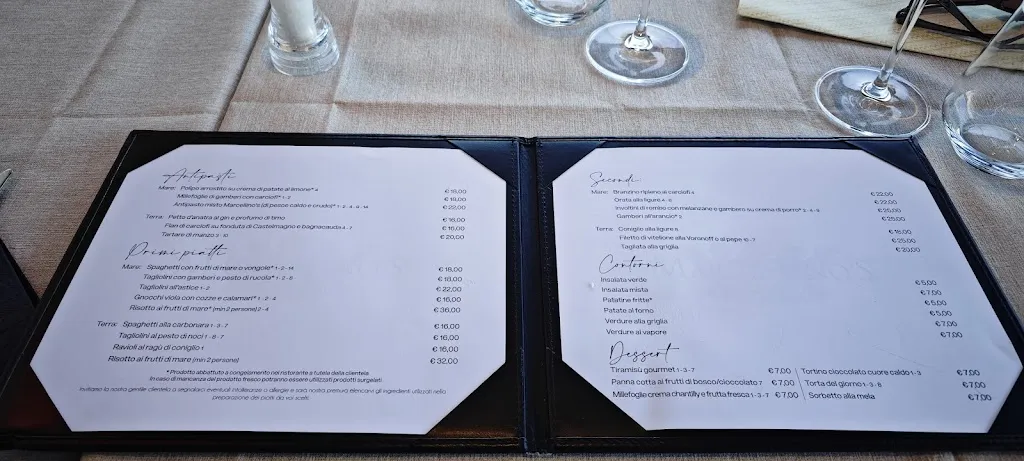 Antipasti
Mare: Polipo arrostito su crema di patate al limone* 4 € 18,00
Millefoglie di gamberi con carciofi* 1 - 2 € 18,00
Antipasto misto Marcellino's (di pesce caldo e crudo)* 1 - 2 - 4 - 9 - 14 € 22,00
Terra: Petto d'anatra al gin e profumo di timo € 16,00
Flan di carciofi su fonduta di Castelmagno e bagnacauda 4 - 7 € 16,00
Tartare di manzo 3 - 10 € 20,00
Primi piatti
Mare: Spaghetti con frutti di mare o vongole* 1 - 2 - 14 € 18,00
Tagliolini con gamberi e pesto di rucola* 1 - 2 - 8 € 18,00
Tagliolini all'astice 1 - 2 € 22,00
Gnocchi viola con cozze e calamari* 1 - 2 - 4 € 16,00
Risotto ai frutti di mare* (min 2 persone) 2 - 4 € 36,00
Terra: Spaghetti alla carbonara 1 - 3 - 7 € 16,00
Tagliolini al pesto di noci 1 - 6 - 7 € 16,00
Ravioli al ragù di coniglio 1 € 16,00
Risotto ai frutti di mare (min 2 persone) € 32,00
* Prodotto abbattuto a congelamento nel ristorante a tutela della clientela
In caso di mancanza del prodotto fresco potranno essere utilizzati prodotti surgelati
Invitiamo la nostra gentile clientela a segnalarci eventuali intolleranze o allergie e sarà nostra premura elencarvi gli ingredienti utilizzati nella
preparazione dei piatti da voi scelti.
Secondi
Mare: Branzino ripieno ai carciofi 4 € 22,00
Orata alla ligure 4 - 6 € 22,00
Involtini di rombo con melanzane e gambero su crema di porro* 2 - 4 - 6 € 25,00
Gamberi all'arancio* 2 € 25,00
Terra: Coniglio alla ligure 6 € 18,00
Filetto di vitellone alla Voronoff o al pepe 10 - 7 € 25,00
Tagliata alla griglia € 20,00
Contorni
Insalata verde € 5,00
Insalata mista € 7,00
Patatine fritte* € 5,00
Patate al forno € 5,00
Verdure alla griglia € 7,00
Verdure al vapore € 7,00
Dessert
Tiramisù gourmet 1 - 3 - 7 € 7,00
Panna cotta ai frutti di bosco/cioccolato 7 € 7,00
Millefoglie crema chantilly e frutta fresca 1 - 3 - 7 € 7,00
Tortino cioccolato cuore caldo 1 - 3 € 7,00
Torta del giorno 1 - 3 - 8 € 7,00
Sorbetto alla mela € 7,00